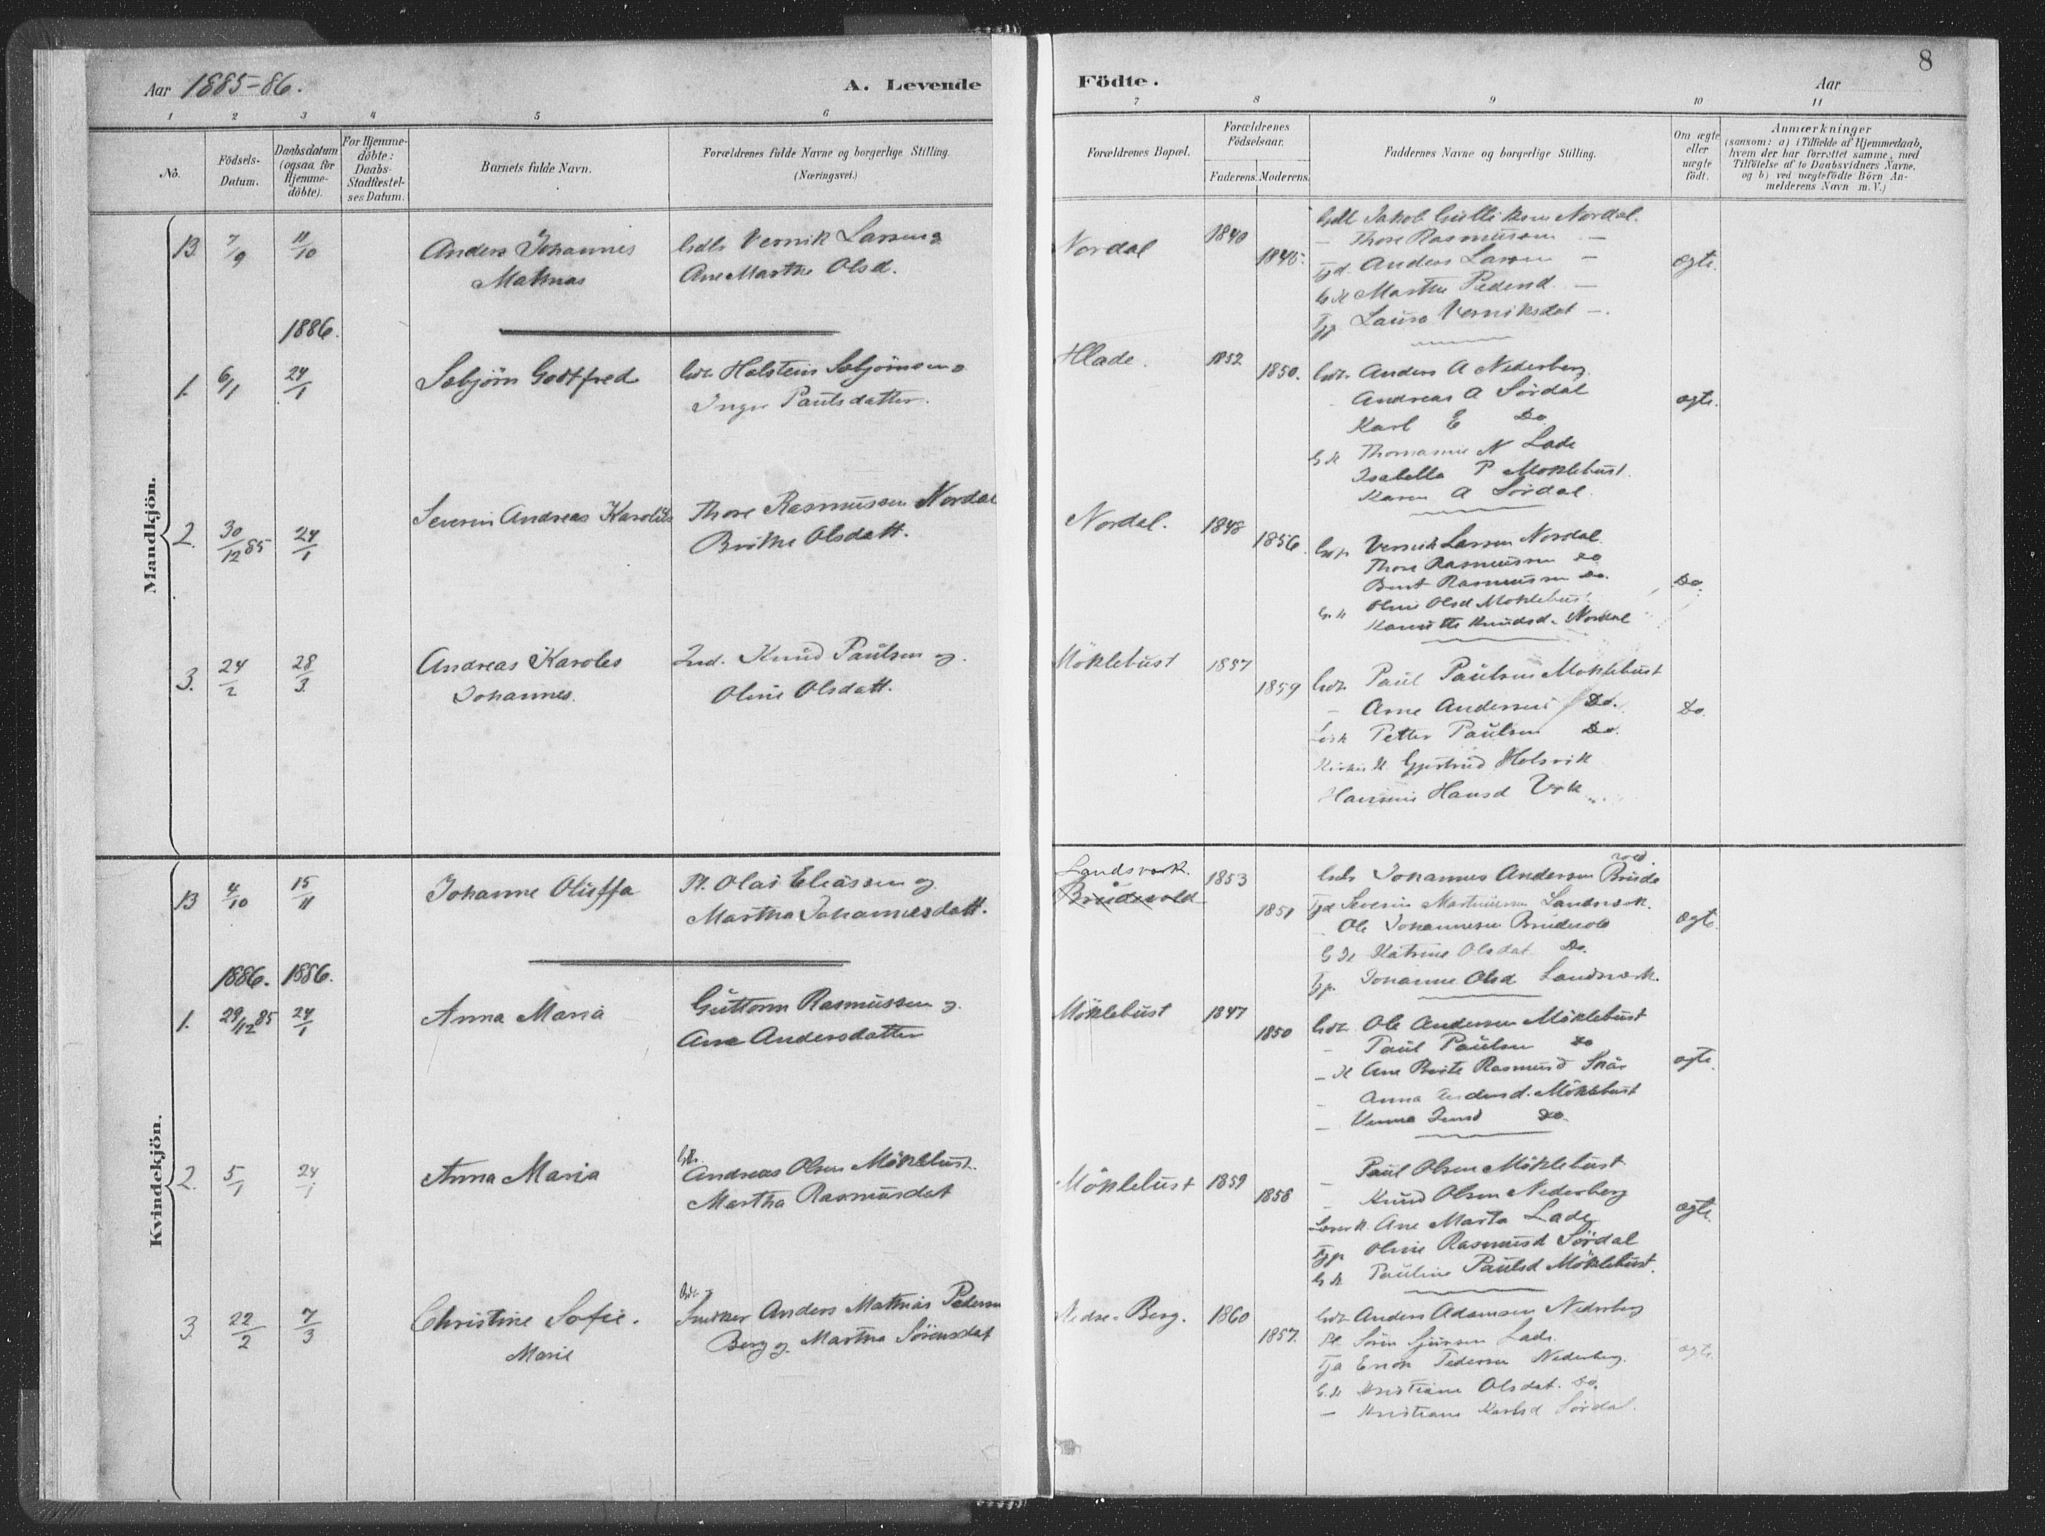 Aar 1885-86. A. Levende
1 2 3 4 5 6
No.
Födsels-Datum.
Daabsdatum (ogsaa for Hjemme-döbte).
For Hjemme-döbte: Daabs-Stadfæstel-ses Datum.
Barnets fulde Navn.
Forældrenes fulde Navne og borgerlige Stilling. (Næringsvei.)
Mandkjön.
13. 7/9 11/10 Anders Johannes Gdbr Vernik Larsen og
Matnias Ane Marthe Olsd.
1886.
1. 6/1 24/1 Sæbjörn Godtfred Gdb. Holstein Sæbjörnsen o
Inger Paulsdatter.
2. 30/12 85 24/1 Severin Andreas Karolius Thore Rasmussen Nordal
Brithe Olsdatt.
3. 24/2 28/3 Andreas Karoles Ind. Knud Paulsen og
Johannes. Oline Olsdatt.
Kvindekjön.
13 4/10 15/11 Johanne Oluffa Pl. Olai Eliassen og
Martha Johannesdatt.
1886. 1886.
1. 29/12 85 24/1 Anna Maria Guttorm Rasmussen og
Ane Andersdatter
2. 5/1 24/1 Anna Maria Andreas Olsen Möklebust.
Martha Rasmusdat
3. 22/2 7/3 Christine Sofie Snekker Anders Mathias Pedersen
Marie Berg og Martha Sörensdat
Födte. Aar 8
7 8 9 10 11
Forældrenes Bopæl.
Forældrenes Födselsaar.
Faderens. Moderens.
Faddernes Navne og borgerlige Stilling.
Om ægte eller uægte födt.
Anmærkninger
(saasom: a) i Tilfælde af Hjemmedaab, hvem der har forrettet samme, med Tilföielse af to Daabsvidners Navne, og b) ved uægtefödte Börn An-melderens Navn m. V.)
Nordal 1840 1845. Gdb Jakob Gulliksen Nordal. ægte.
– Thore Rasmussen –
Tjd. Anders Larsen –
G K Marthe Pedersd. –
Tjp Laura Verniksdat –.
Hlade. 1852 1850. Gdb. Anders A Nederberg. ægte.
Andreas A Sördal
Karl E Do
G K Thomasine N Lade
Isabella P Möklebust.
Karen A Sördal.
Nordal. 1848 1856. Vernik Larsen Nordal. Do.
Thore Rasmussen Do
Bent Rasmussen Do.
G. K Oline Olsd Moklebust
Knudsd. Nordal
Möklebust 1857 1859 Gdb. Paul Paulsen Moklebust Do.
– Arne Andersen Do.
Petter Paulsen Do.
Gjertrud Holsvik
Hansd Vik
Landsværk. Brudevold 1853 1851 Johannes Andersen Brude vold ægte
Tjd Severin Martinusen Landsværk.
Ole Johannesen Brudevold
G K Katrine Olsdat Do.
Tjp. Johanne Olsd Landsværk.
Möklebust 1847 1850 Gdb. Ole Andersen Möklebust ægte.
– Paul Paulsen Do
– K Ane Brite Rasmusd Skår
– Anna Andersd. Möklebust
– Do.
Möklebust 1859 1858 – Paul Olsen Möklebust ægte.
– Knud Olsen Nederberg
Ane Marta Lade
Tjp Oline Rasmusd Sördal
G K Pauline Paulsd Möklebust.
Nedre-Berg. 1860 1857. Gdb. Anders Adamsen Nederberg ægte.
Sören Sjursen Lade.
Tjd Enok Pedersen Nederberg.
G. K Kristiane Olsdat. Do.
– Kristiane Karlsd Sördal.